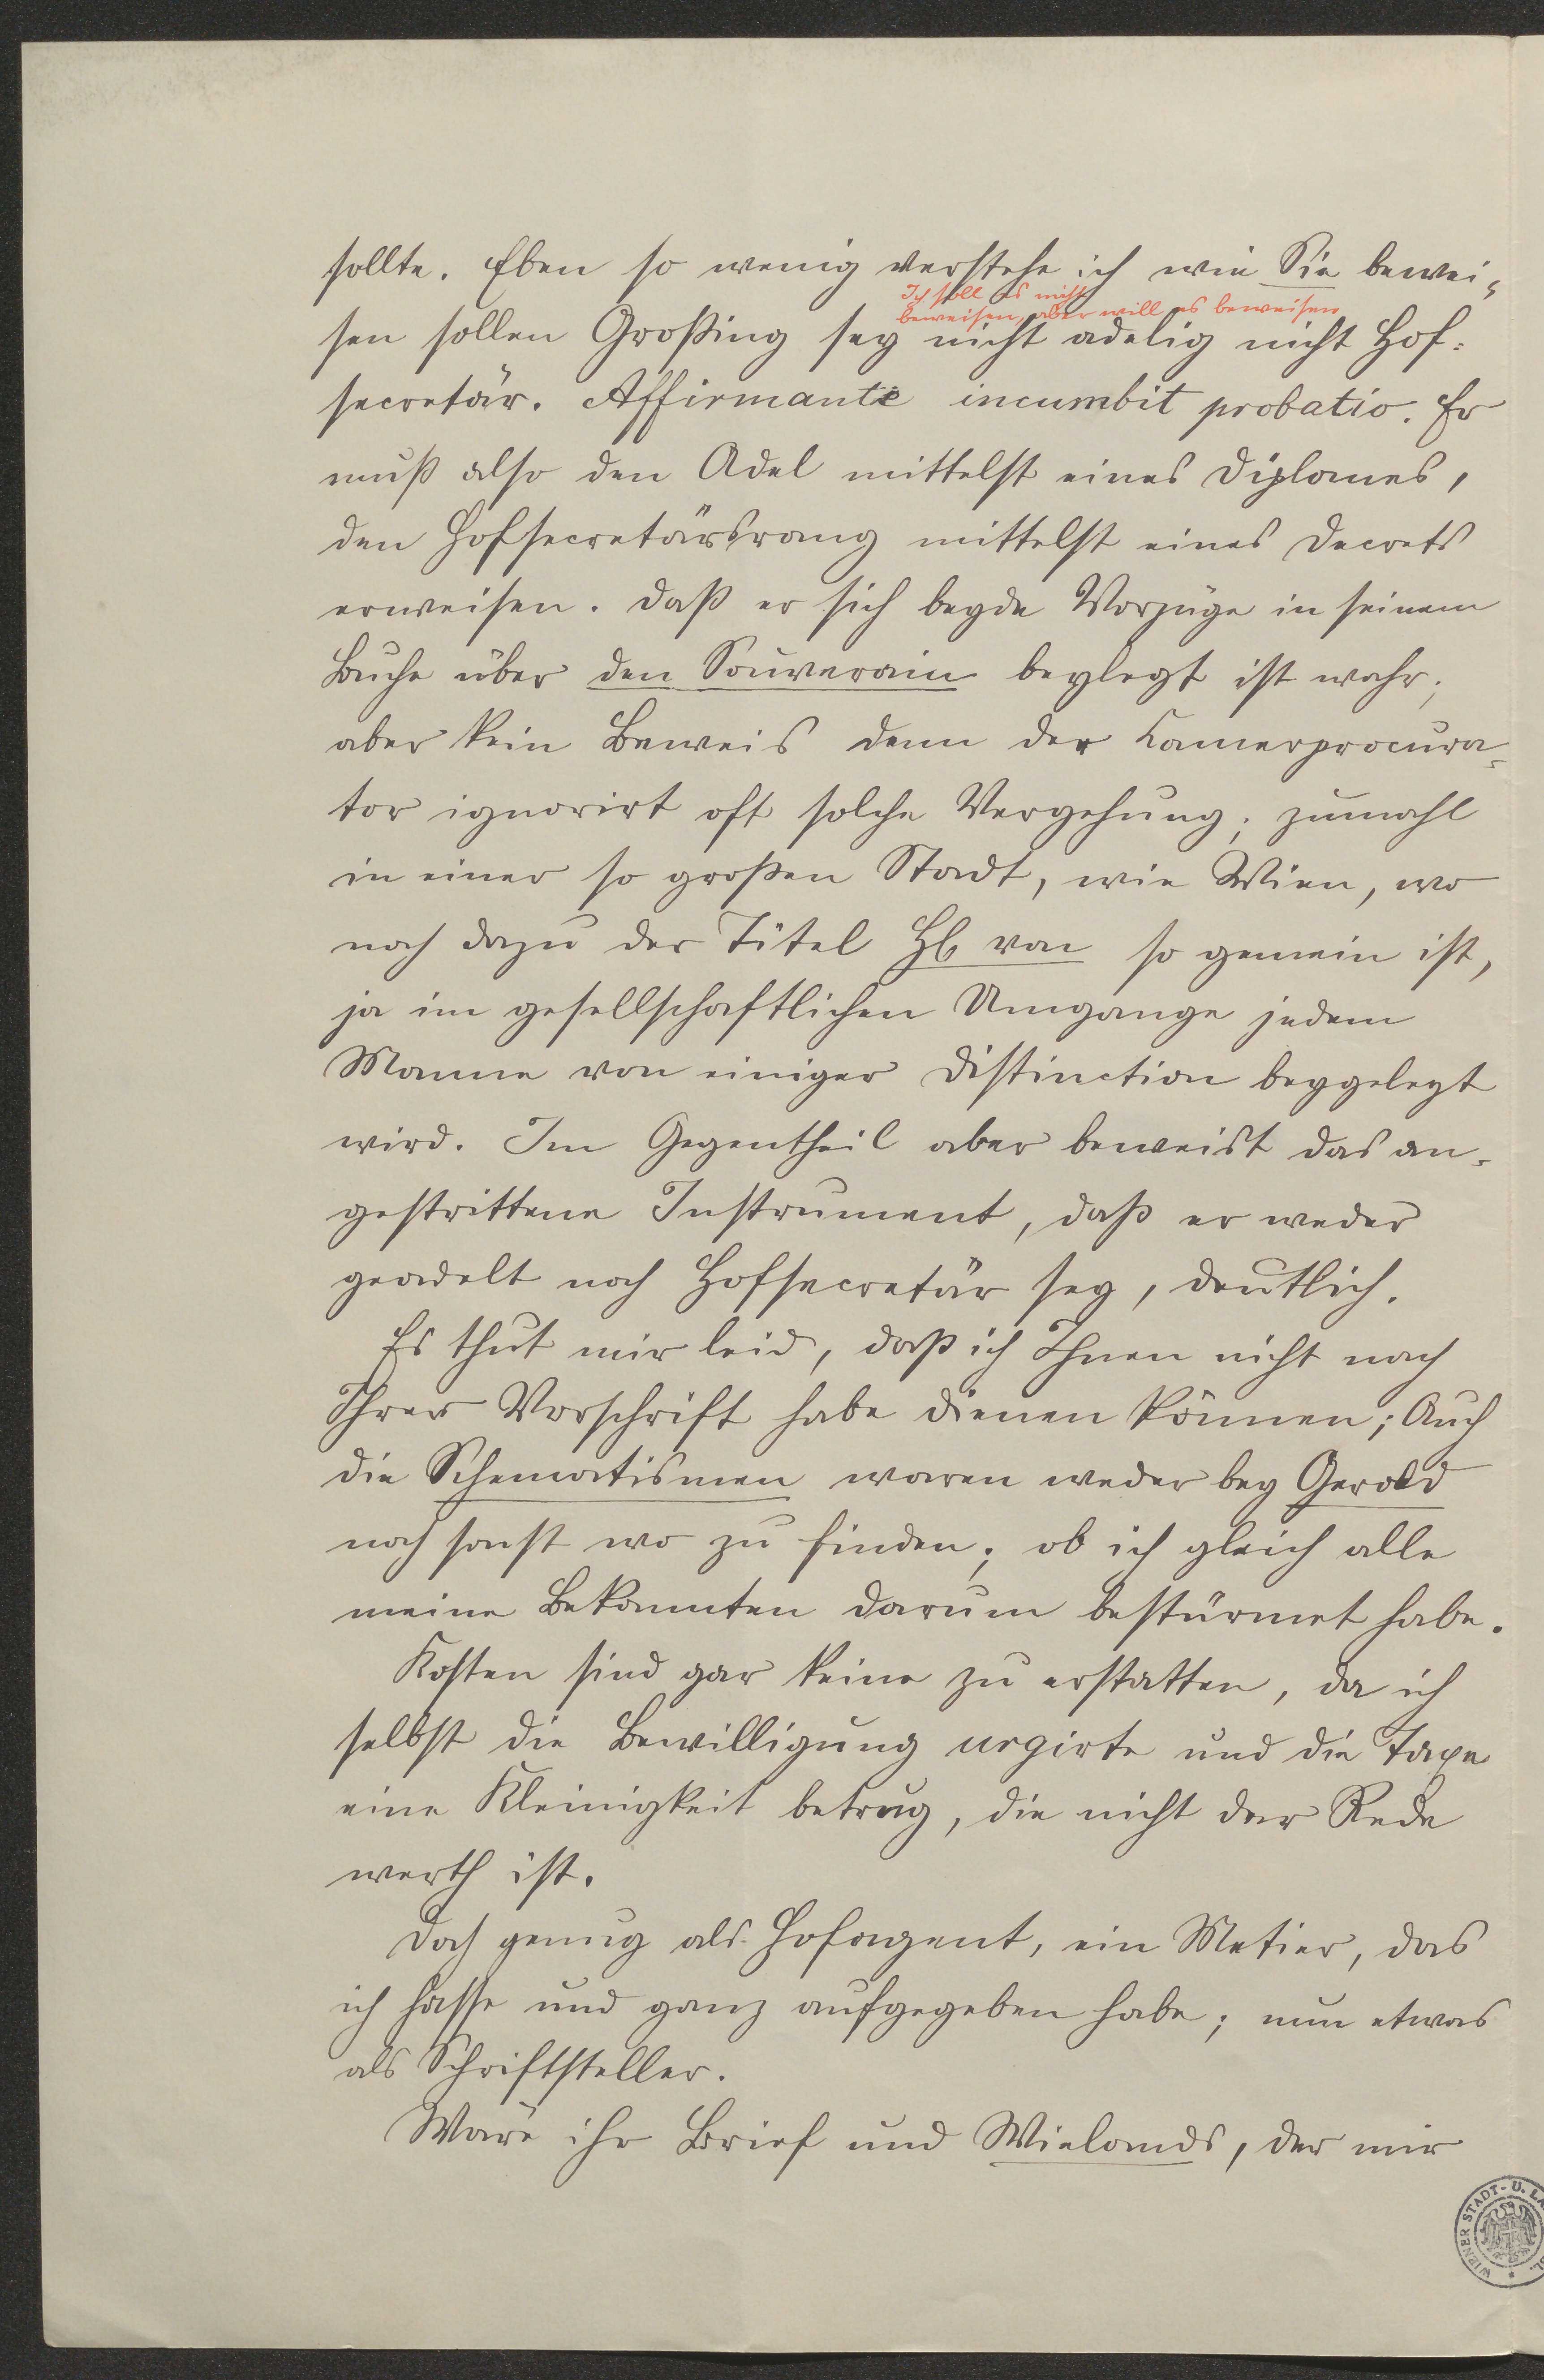 sollte. Eben so wenig verstehe ich wie Sie bewei-
Ich soll es nicht
beweisen, aber will es beweisen
sen sollen Großing sey nicht adelig nicht Hof-
secretär. Affirmanti incumbit probatio. Er
muß also den Adel mittelst eines Diplomes,
den Hofsecretärsrang mittelst eines Decrets
erweisen. Daß er sich beyde Vorzüge in seinem
Buche über den Souverain beylegt ist wahr;
aber kein Beweis denn der Kamerprocura-
tor ignorirt oft solche Vergehung; zumahl
in einer so großen Stadt, wie Wien, wo
noch dazu der Titel von so gemein ist,
ja im gesellschaftlichen Umgange jedem
Manne von einiger Distinction beygelegt
wird. Im Gegentheil aber beweist das an-
gestrittene Instrument, daß er weder
geadelt noch Hofsecretär sey, deutlich.
Es thut mir leid, daß ich Ihnen nicht nach
Ihrer Vorschrift habe dienen können; Auch
die Schematismen waren weder bey Gerold
noch sonst wo zu finden; ob ich gleich alle
meine Bekannten darum bestürmet habe.
Kosten sind gar keine zu erstatten, da ich
selbst die Bewilligung urgirte und die Taxe
eine Kleinigkeit betrug, die nicht der Rede
werth ist.
Doch genug als Hofagent, ein Metier, das
ich hasse und ganz aufgegeben habe; nun etwas
als Schriftsteller.
Wäre ihr Brief und Wielands, der mir
WIENER STADT- U. LA